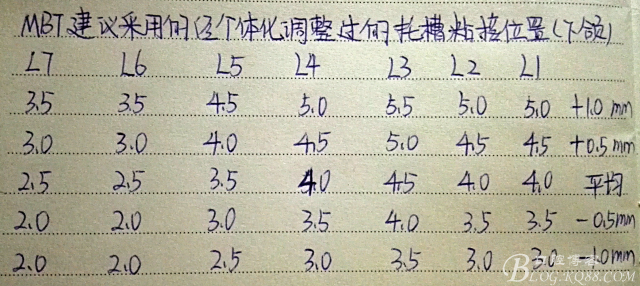 MBT建议采用的经个体化调整过的托槽粘接位置(下颌)
L7 L6 L5 L4 L3 L2 L1
3.5 3.5 4.5 5.0 5.5 5.0 5.0 +1.0 mm
3.0 3.0 4.0 4.5 5.0 4.5 4.5 +0.5mm
2.5 2.5 3.5 4.0 4.5 4.0 4.0 平均
2.0 2.0 3.0 3.5 4.0 3.5 3.5 -0.5mm
2.0 2.0 2.5 3.0 3.5 3.0 3.0 -1.0mm
口腔博客
BLOG.KQ88.COM